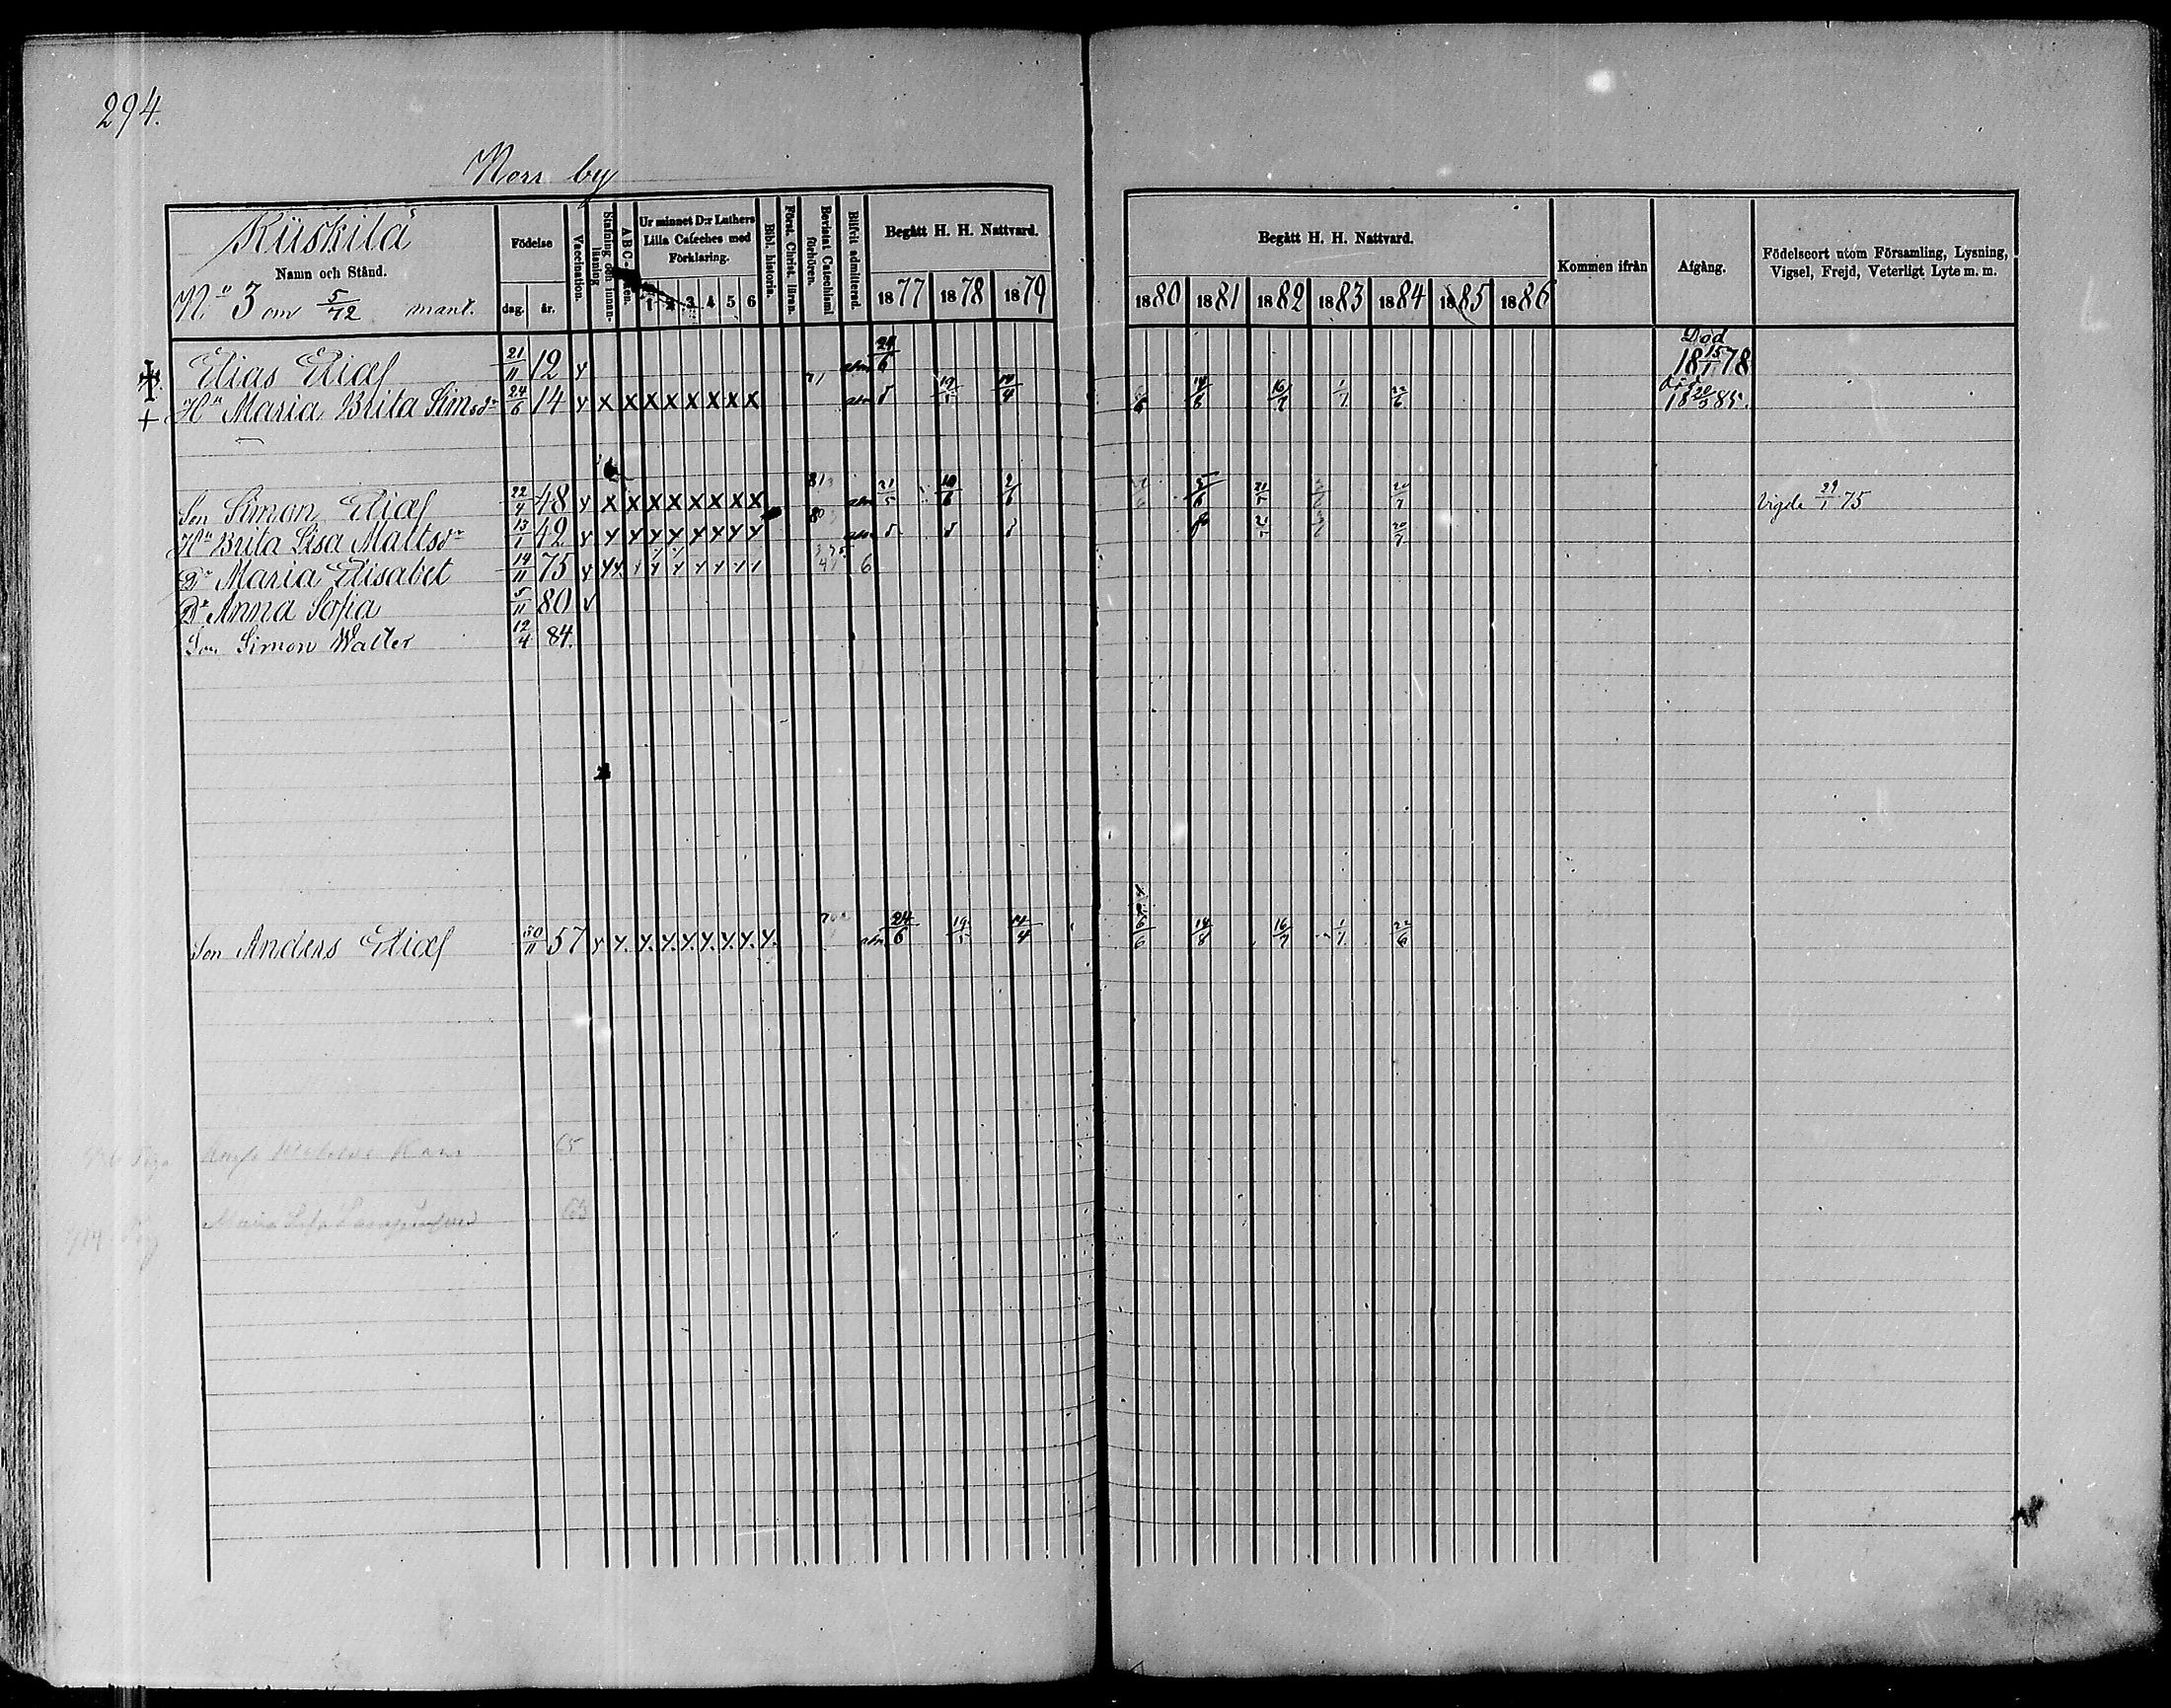 294.
Norr by
Kiiskilä
Namn och Stånd.
N:o 3 om 5/72 mant.
Födelse
dag. år.
Vaccination.
Stafning och innanläsning
A B C-
Ur minnet D:r Luthers Lilla Cateches med Förklaring.
1 2 3 4 5 6
Bibl. historia.
Först. Christ. läran.
Bevistat Catechismi förhören.
Blifvit admitterad.
Begått H. H. Nattvard.
1877 1878 1879
Begått H. H. Nattvard.
1880 1881 1882 1883 1884 1885 1886
Kommen ifrån
Afgång.
Födelseort utom Församling, Lysning, Vigsel, Frejd, Veterligt Lyte m. m.
Elias Eliæs 21/11 12 y 24/6 Död 18 15/1 78
H:u Maria Brita Simsdr 24/6 14 y x x x x x x x x 19/5 14/4 6 14/8 16/7 1/7 22/6 Död 18 20/3 85.
Son Simon Eliæs 22/4 48 y x x x x x x x x 81 21/5 10/6 2/6 5/6 21/5 20/7 Vigde 29/1 75
H:u Brita Lisa Mattsdr 13/1 42 y y y y y y y y y 80 21/5 20/7
Dr Maria Elisabet 14/11 75 y y y y y y y 6
Dr Anna Sofia 5/11 80 v
Son Simon Walter 12/4 84.
Son Anders Eliæs 30/11 57 y y. y. y. y. y. y. y. y. 24/6 19/5 14/4 6/6 14/8 16/7 1/7 22/6
65
63